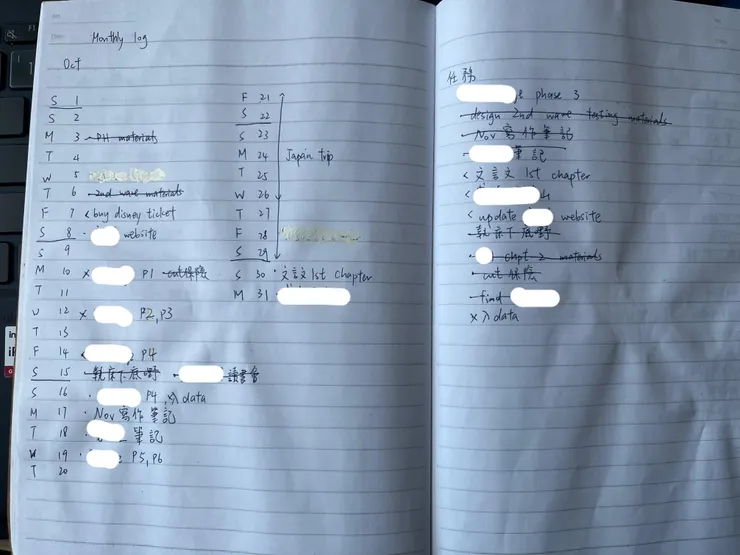 Monthly log
Oct
S 1
S 2
M 3 - PH materials
T 4
W 5
T 6 - 2nd wave materials
F 7 < buy disney ticket
S 8 · website
S 9
M 10 x P1 - cut保險
T 11
W 12 x P2, P3
T 13
F 14 < P4
S 15 - 執床下底嘢 · 讀書會
S 16 · P4, 入data
M 17 · Nov寫作筆記
T 18 · 筆記
W 19 · P5, P6
T 20
F 21
S 22
S 23
M 24 Japan trip
T 25
W 26
T 27
F 28
S 29
S 30 · 文言文 1st chapter
M 31 ·
任務
phase 3
- design 2nd wave testing materials
- Nov 寫作筆記
- 筆記
< 文言文 1st chapter
<
< update website
- 執床下底嘢
- chpt 2 materials
- cut 保險
- find
x 入data